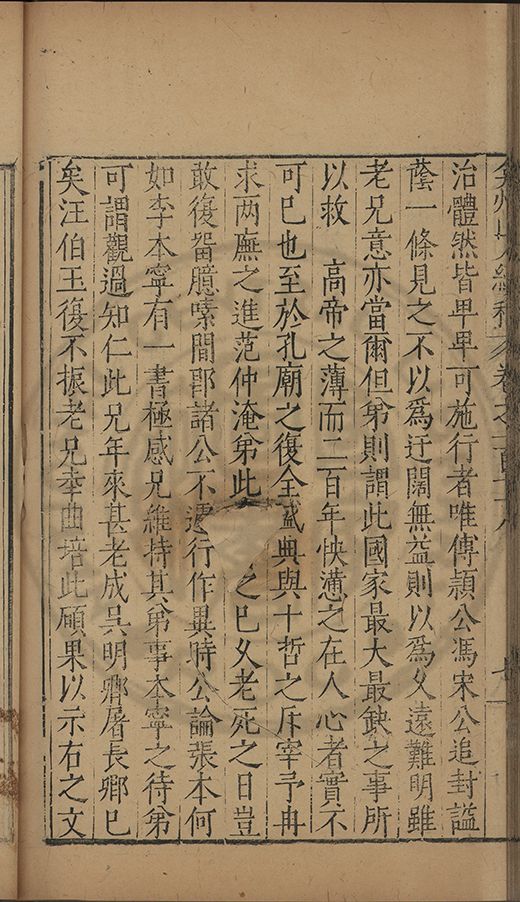 治體然皆卑卑可施行者唯傅頴公馮宋公追封諡
蔭一條見之不以爲迂闊無益則以爲久遠難明雖
老兄意亦當爾但弟則謂此國家最大最缺之事所
以救　高帝之薄而二百年怏懣之在人心者實不
可已也至於孔廟之復全盛典與十哲之斥宰予冉
求两廡之進范仲淹弟此　　之已乆老死之日豈
敢復畱臆嗉間郎諸公不遽行作異時公論張本何
如李本寧有一書極感兄維持其弟事本寧之待弟
可謂觀過知仁此兄年來甚老成吳明卿屠長卿已
矣汪伯玉復不振老兄幸曲培此碩果以示右之文